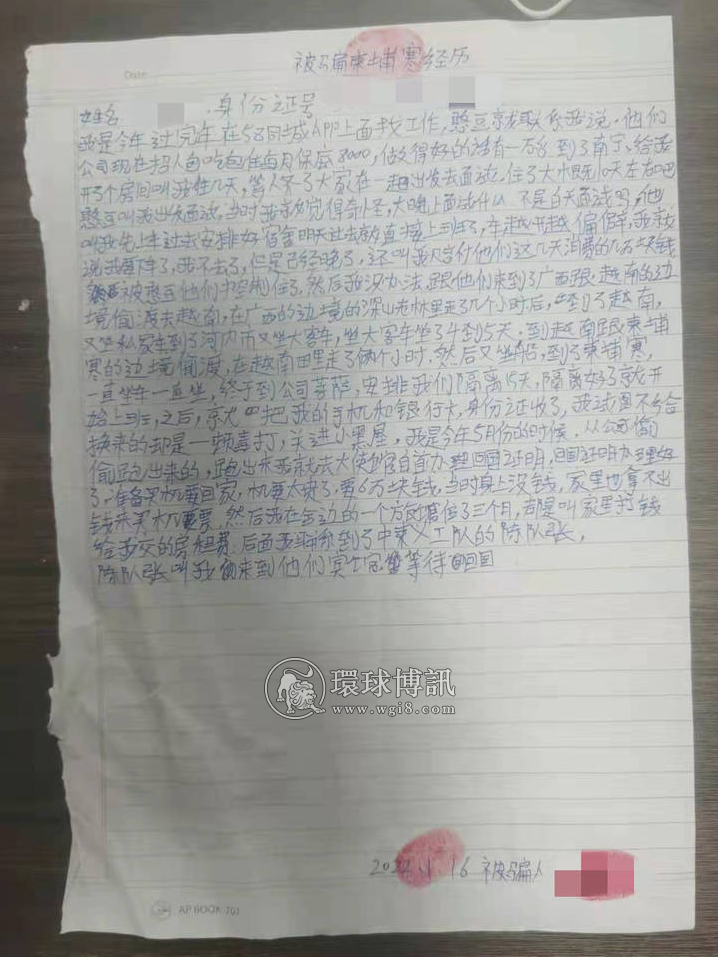 被骗柬埔寨经历
Date
姓名 身份证号
我是今年过完年在58同城APP上面找工作,憨豆就联系我说,他们
公司现在招人包吃包住每月保底8000,做得好的话有一万多到了南宁,给我
开了个房间叫我住几天,等人齐了大家在一起出发去面试,住了大概10天左右吧
憨豆叫我出发面试,当时我就觉得奇怪,大晚上面试什么 不是白天面试吗,他
叫我先上车过去安排好宿舍明天过去就直接上班了,车越开越偏僻,我就
说我要下车了,我不去了,但是已经晚了,还叫我赔付他们这几天消费的几万块钱
被憨豆他们控制住了,然后我没办法跟他们来到了广西跟越南的边
境偷渡去越南,在广西的边境的深山老林里走了几个小时后,到了越南,
又坐私家车到了河内市又坐大客车,坐大客车坐了4到5天,到越南跟柬埔
寨的边境偷渡,在越南田里走了俩个小时,然后又坐船,到了柬埔寨,
一直坐车一直坐,终于到公司菩萨,安排我们隔离15天,隔离好了就开
始上班,之后,就把我的手机和银行卡,身份证收了,我试图不给
换来的却是一顿毒打,关进小黑屋,我是今年5月份的时候,从公司偷
偷跑出来的,跑出来我就去大使馆自首办理回国证明,回国证明办理好
了,准备买机票回家,机票太贵了,要6万块钱,当时身上没钱,家里也拿不出
钱来买机票,然后我在金边的一个方的宾馆住了三个月,都是叫家里打钱
给我交的房租费,后面我联系到了中柬义工队的陈队长,
陈队长叫我来到他们宾馆等待回国
環球博訊
www.wgi8.com
2022.11.16 被骗人
AP BOOK 701